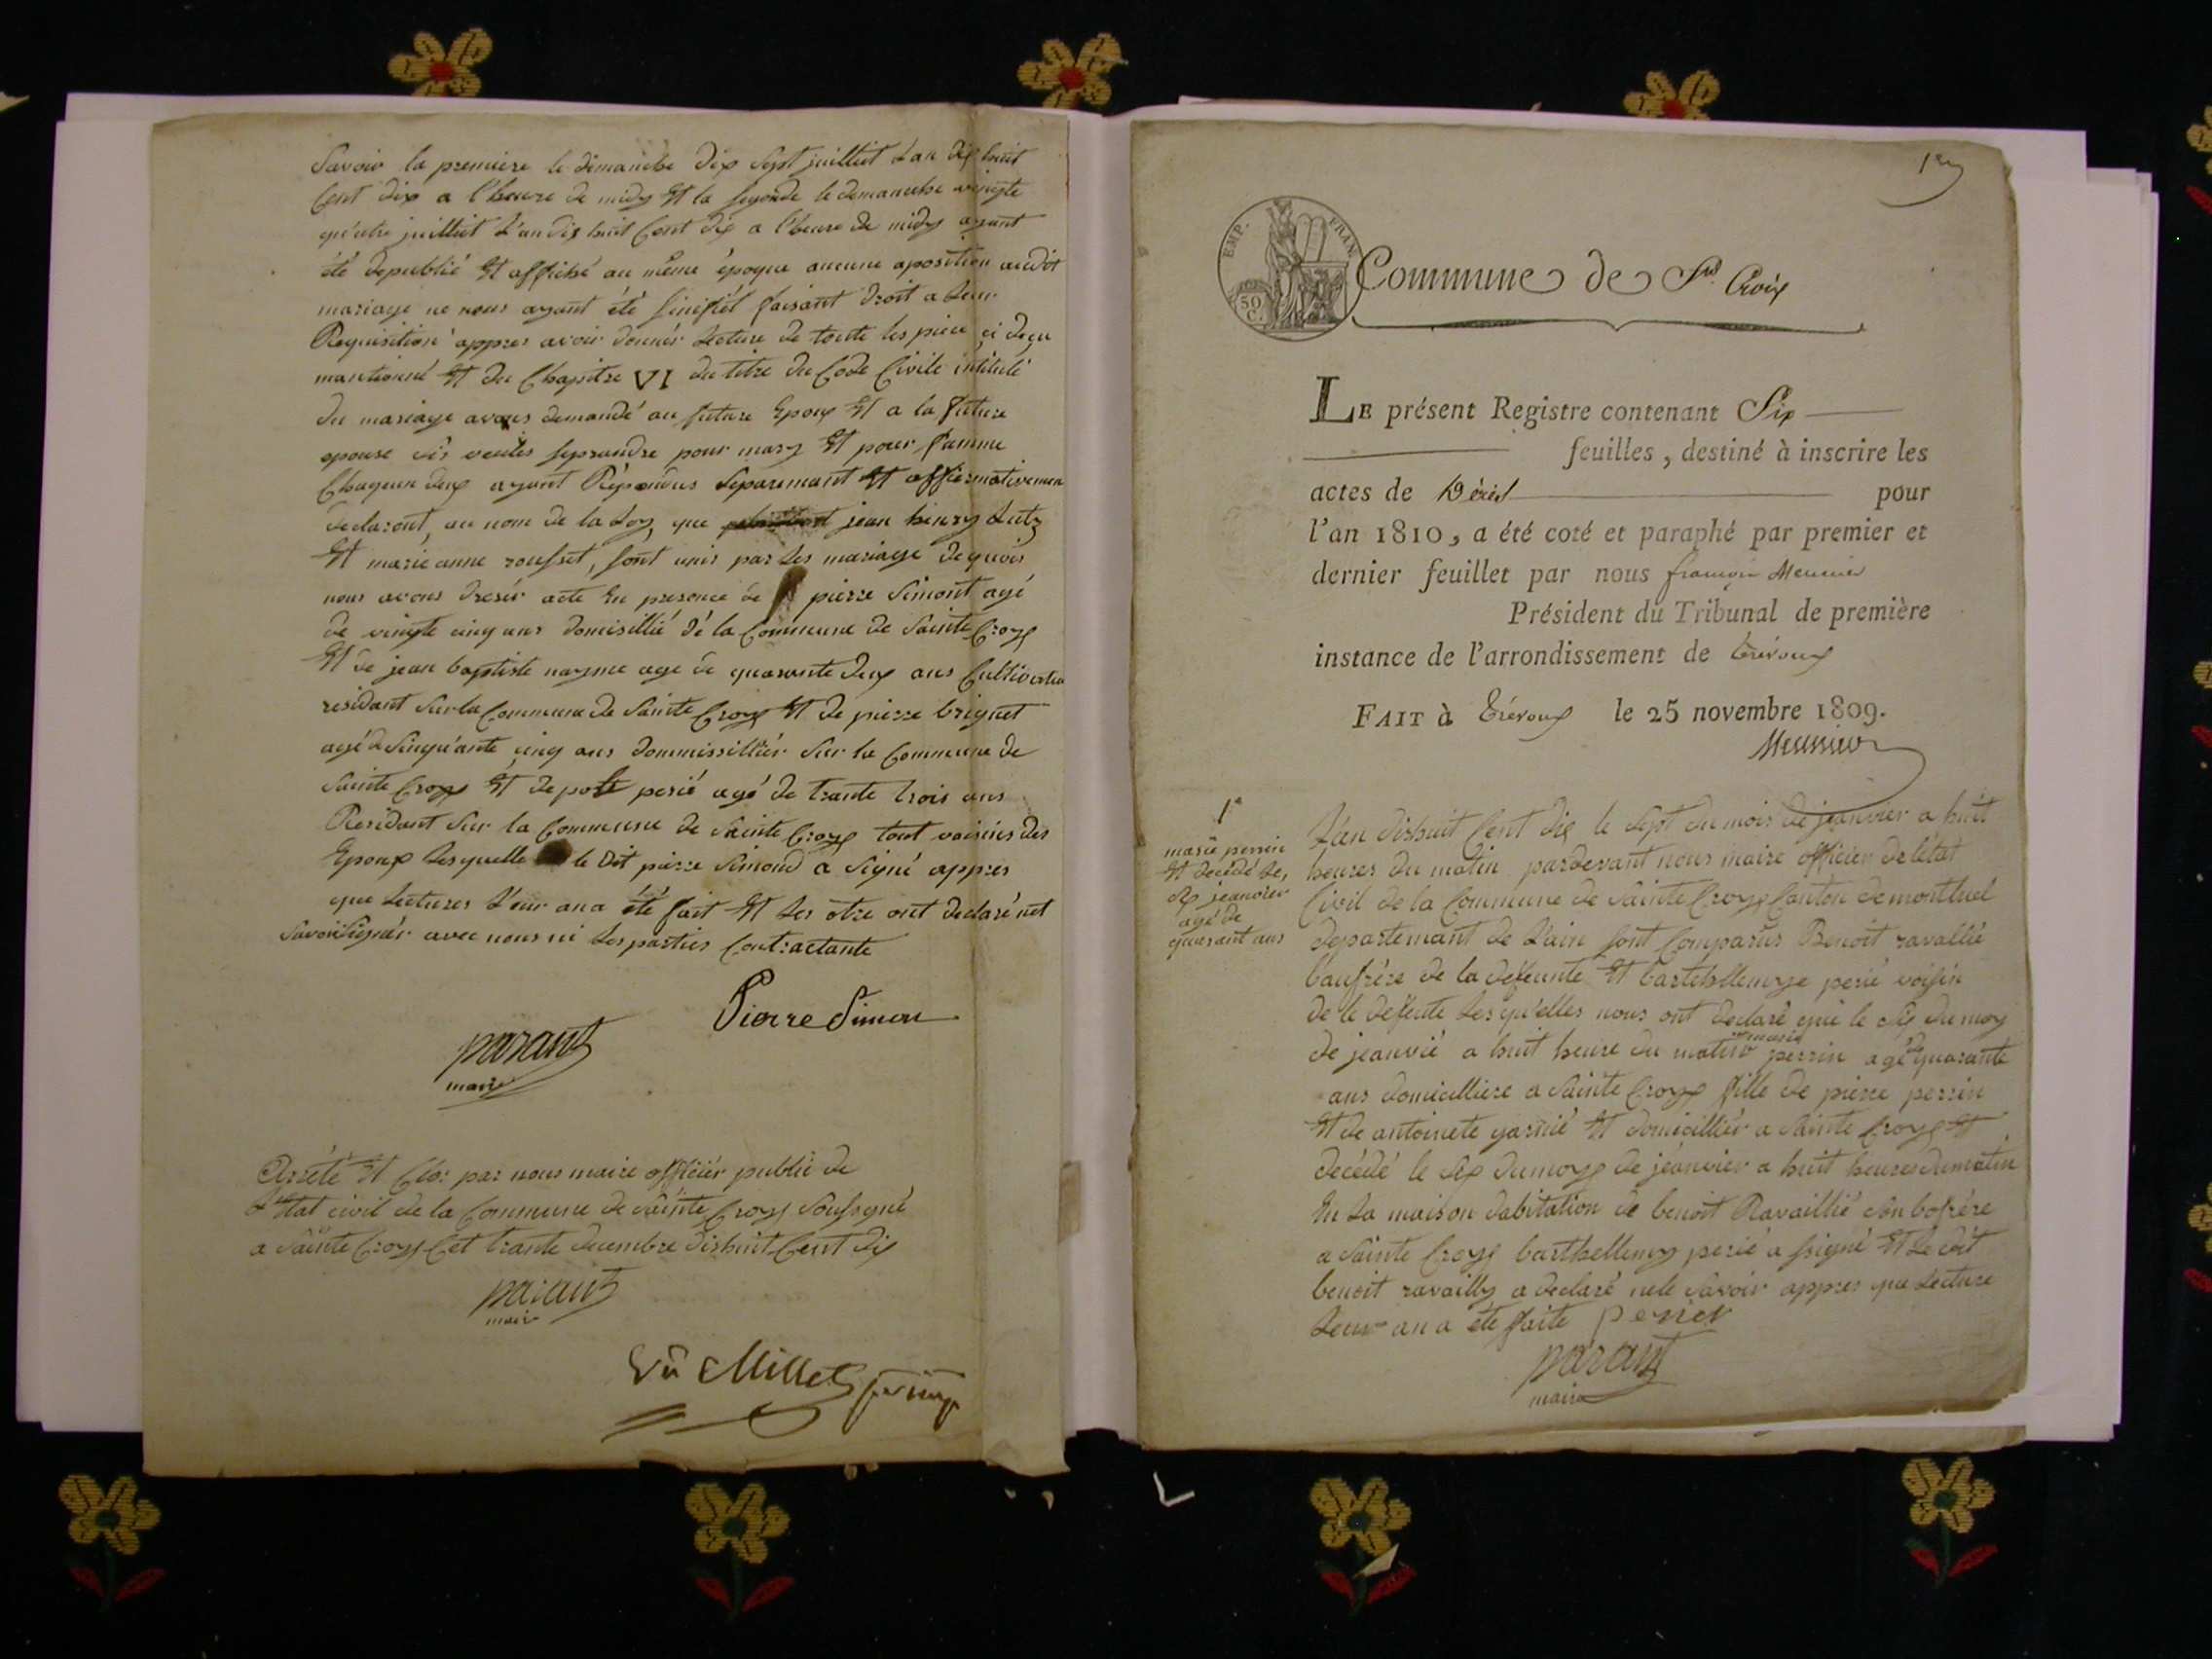 Savoir la premiere le dimanche dix Sept juilliet L'an dix huit
Cent dix a l'heure de midy Et la segonde le demanche vingte
qu'atre juilliet L'an dix huit Cent dix a l'heure de midy ayant
été depublié Et affiché au même époque aucune aposition audit
mariage ne nous ayant été sinifiét faisant droit a Leur
Requisitions appres avoir donnér Lecture de toute les piece ci deçu
mantionné Et du Chapitre VI du titre du Code Civile intitulé
du mariage avons demandé au future Epoux Et a la future
epouse s'is veules seprandre pour mary Et pour famme
Chaqeun deux ayant Répondus Séparemant Et affiermativemen
declaront, au nom de la Loy, que jean henry Lutz
Et marie anne rousset, sont unis par Les mariage dequois
nous avons dresér acte En presence de pierre Simont agé
de vingte cinq ans domisillié dé la Commune de Sainte Croyx
Et de jean baptiste nayme age de quarante deux ans Cultivateu
residant Sur la Commune de Sainte Croyx Et de pierre brignet
agé de Sinqu'ante cinq ans dommissilliér Sur la Commune de
Sainte Croyx Et de perié agé de trante trois ans
Residant Sur la Commune de Sainte Croyx tout voisins des
Epoux Lesquelle le dit pierre Simond a Signé appres
que Lectures L'eur ana été fait Et Les otre ont declaré net
Savoir Signér avec nous ni Les parties Contractante
Pierre Simon
parant
maire
Arrété Et Clor par nous maire officiér publié de
L'Etat civil de la Commune de Sainte Croyx Soussigné
a Sainte Croyx Cet trante decembre dishuit Cent dix
parant
maire
Vû Millet
1er
EMP. FRAN.
50 C.
Commune de Ste Croix
LE présent Registre contenant Six
feuilles, destiné à inscrire les
actes de Décès pour
l'an 1810, a été coté et paraphé par premier et
dernier feuillet par nous françois Meunier
Président du Tribunal de première
instance de l'arrondissement de trévoux
FAIT à Trévoux le 25 novembre 1809.
Meunier
1e
marie perrin
Et decédé Le,
six jeanvier
agé de
quarant ans
L'an dishuit Cent dix le Sept du mois de jeanvier a huit
heures du matin pardevant nous maire officier de l'état
Civil de la Commune de Sainte Croyx Canton de montluel
departemant de L'ain sont Comparus Benoit ravallié
baufrére de la defeunte Et bartehllemye perié voisin
de le defeute Les qu'elles nous ont declaré que le six du moy
de jeanvié a huit heure du matin marie perrin agé de quarante
ans domicilliere a Sainte Croyx fille de pierre perrin
Et de antoinete garnié Et domicilliér a Sainte Croyx Et
decédé le six dumoyx de jeanvier a huit heures dumatin
En La maison dabitation de benoit Ravaillié Son bofrére
a Sainte Croyx barthellemy perié a signé Et Le dit
benoit ravailly a declaré nele Savoir appres que Lecture
Leur an a été faite perier
parant
maire